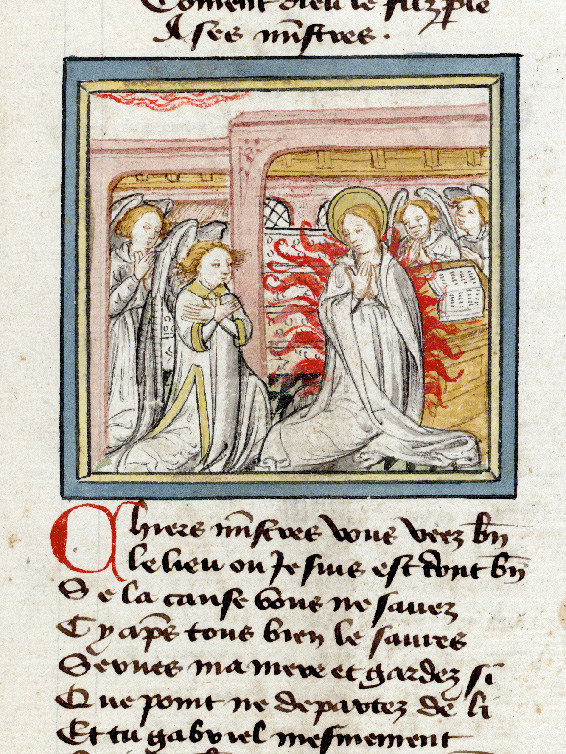 Coment dieu le filz ꝑle
A ses mi̅stres .
Chiers mi̅stres vous veez bn̅
le lieu ou Jesuis est dont bn̅
Se la cause vous ne sauez
Cy ap̅s tous bien le saures
Serues ma mere et gardez si
Que point ne departez de li
Et tu gabriel mesmement